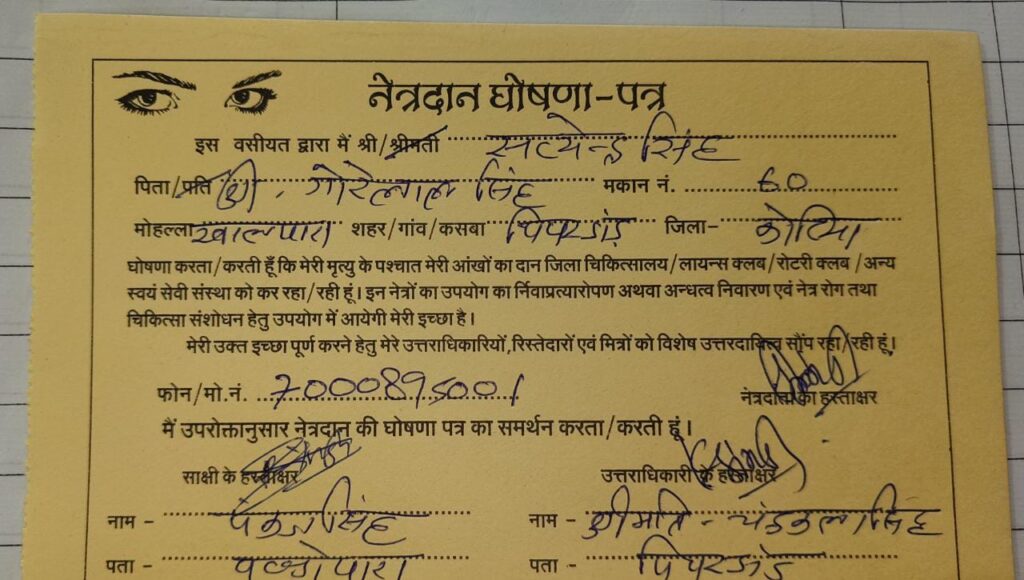 नेत्रदान घोषणा-पत्र
इस वसीयत द्वारा मैं श्री/श्रीमती सत्येन्द्र सिंह
पिता/प्रति श्री. गोरेलाल सिंह मकान नं. 60
मोहल्ला खालपारा शहर/गांव/कसबा पिपरडांड़ जिला-
घोषणा करता/करती हूँ कि मेरी मृत्यु के पश्चात मेरी आंखों का दान जिला चिकित्सालय/लायन्स क्लब/रोटरी क्लब/अन्य
स्वयं सेवी संस्था को कर रहा/रही हूं। इन नेत्रों का उपयोग का र्निवाप्रत्यारोपण अथवा अन्धत्व निवारण एवं नेत्र रोग तथा
चिकित्सा संशोधन हेतु उपयोग में आयेगी मेरी इच्छा है।
मेरी उक्त इच्छा पूर्ण करने हेतु मेरे उत्तराधिकारियों, रिस्तेदारों एवं मित्रों को विशेष उत्तरदायित्व सौंप रहा/रही हूं।
फोन/मो.नं. 7000895001 नेत्रदाता का हस्ताक्षर
मैं उपरोक्तानुसार नेत्रदान की घोषणा पत्र का समर्थन करता/करती हूं।
साक्षी के हस्ताक्षर उत्तराधिकारी के हस्ताक्षर
नाम - पंकज सिंह नाम - श्रीमति - चंद्रकला सिंह
पता - पता - पिपरडांड़